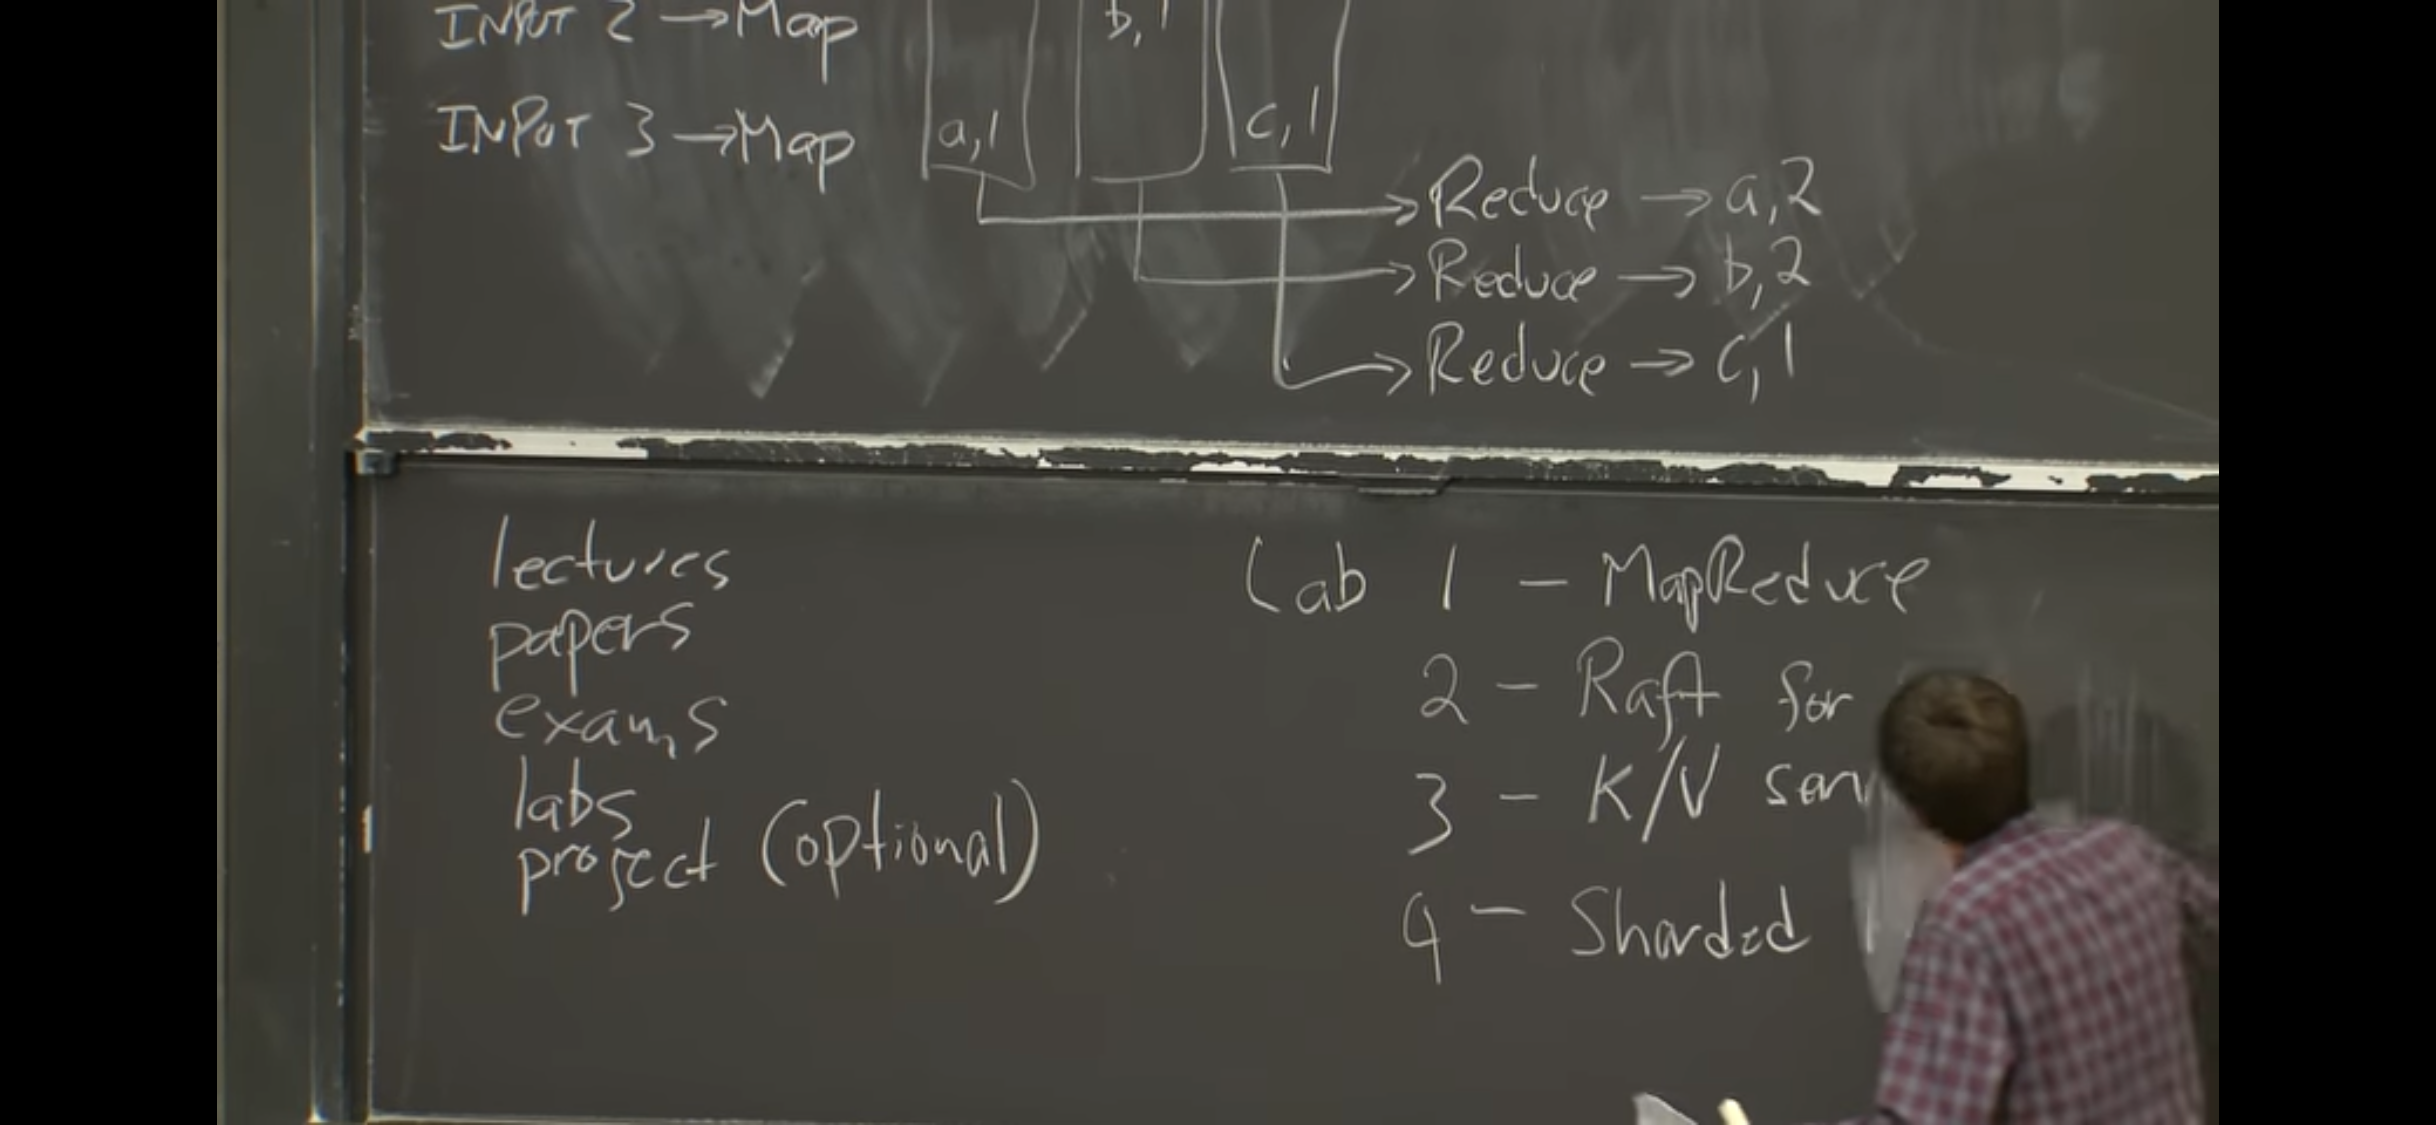 INPUT 2 → Map
b, 1
INPUT 3 → Map
a, 1
c, 1
Reduce → a, 2
Reduce → b, 2
Reduce → c, 1
lectures
papers
exams
labs
project (optional)
Lab 1 - MapReduce
2 - Raft for
3 - K/V
4 - Sharded